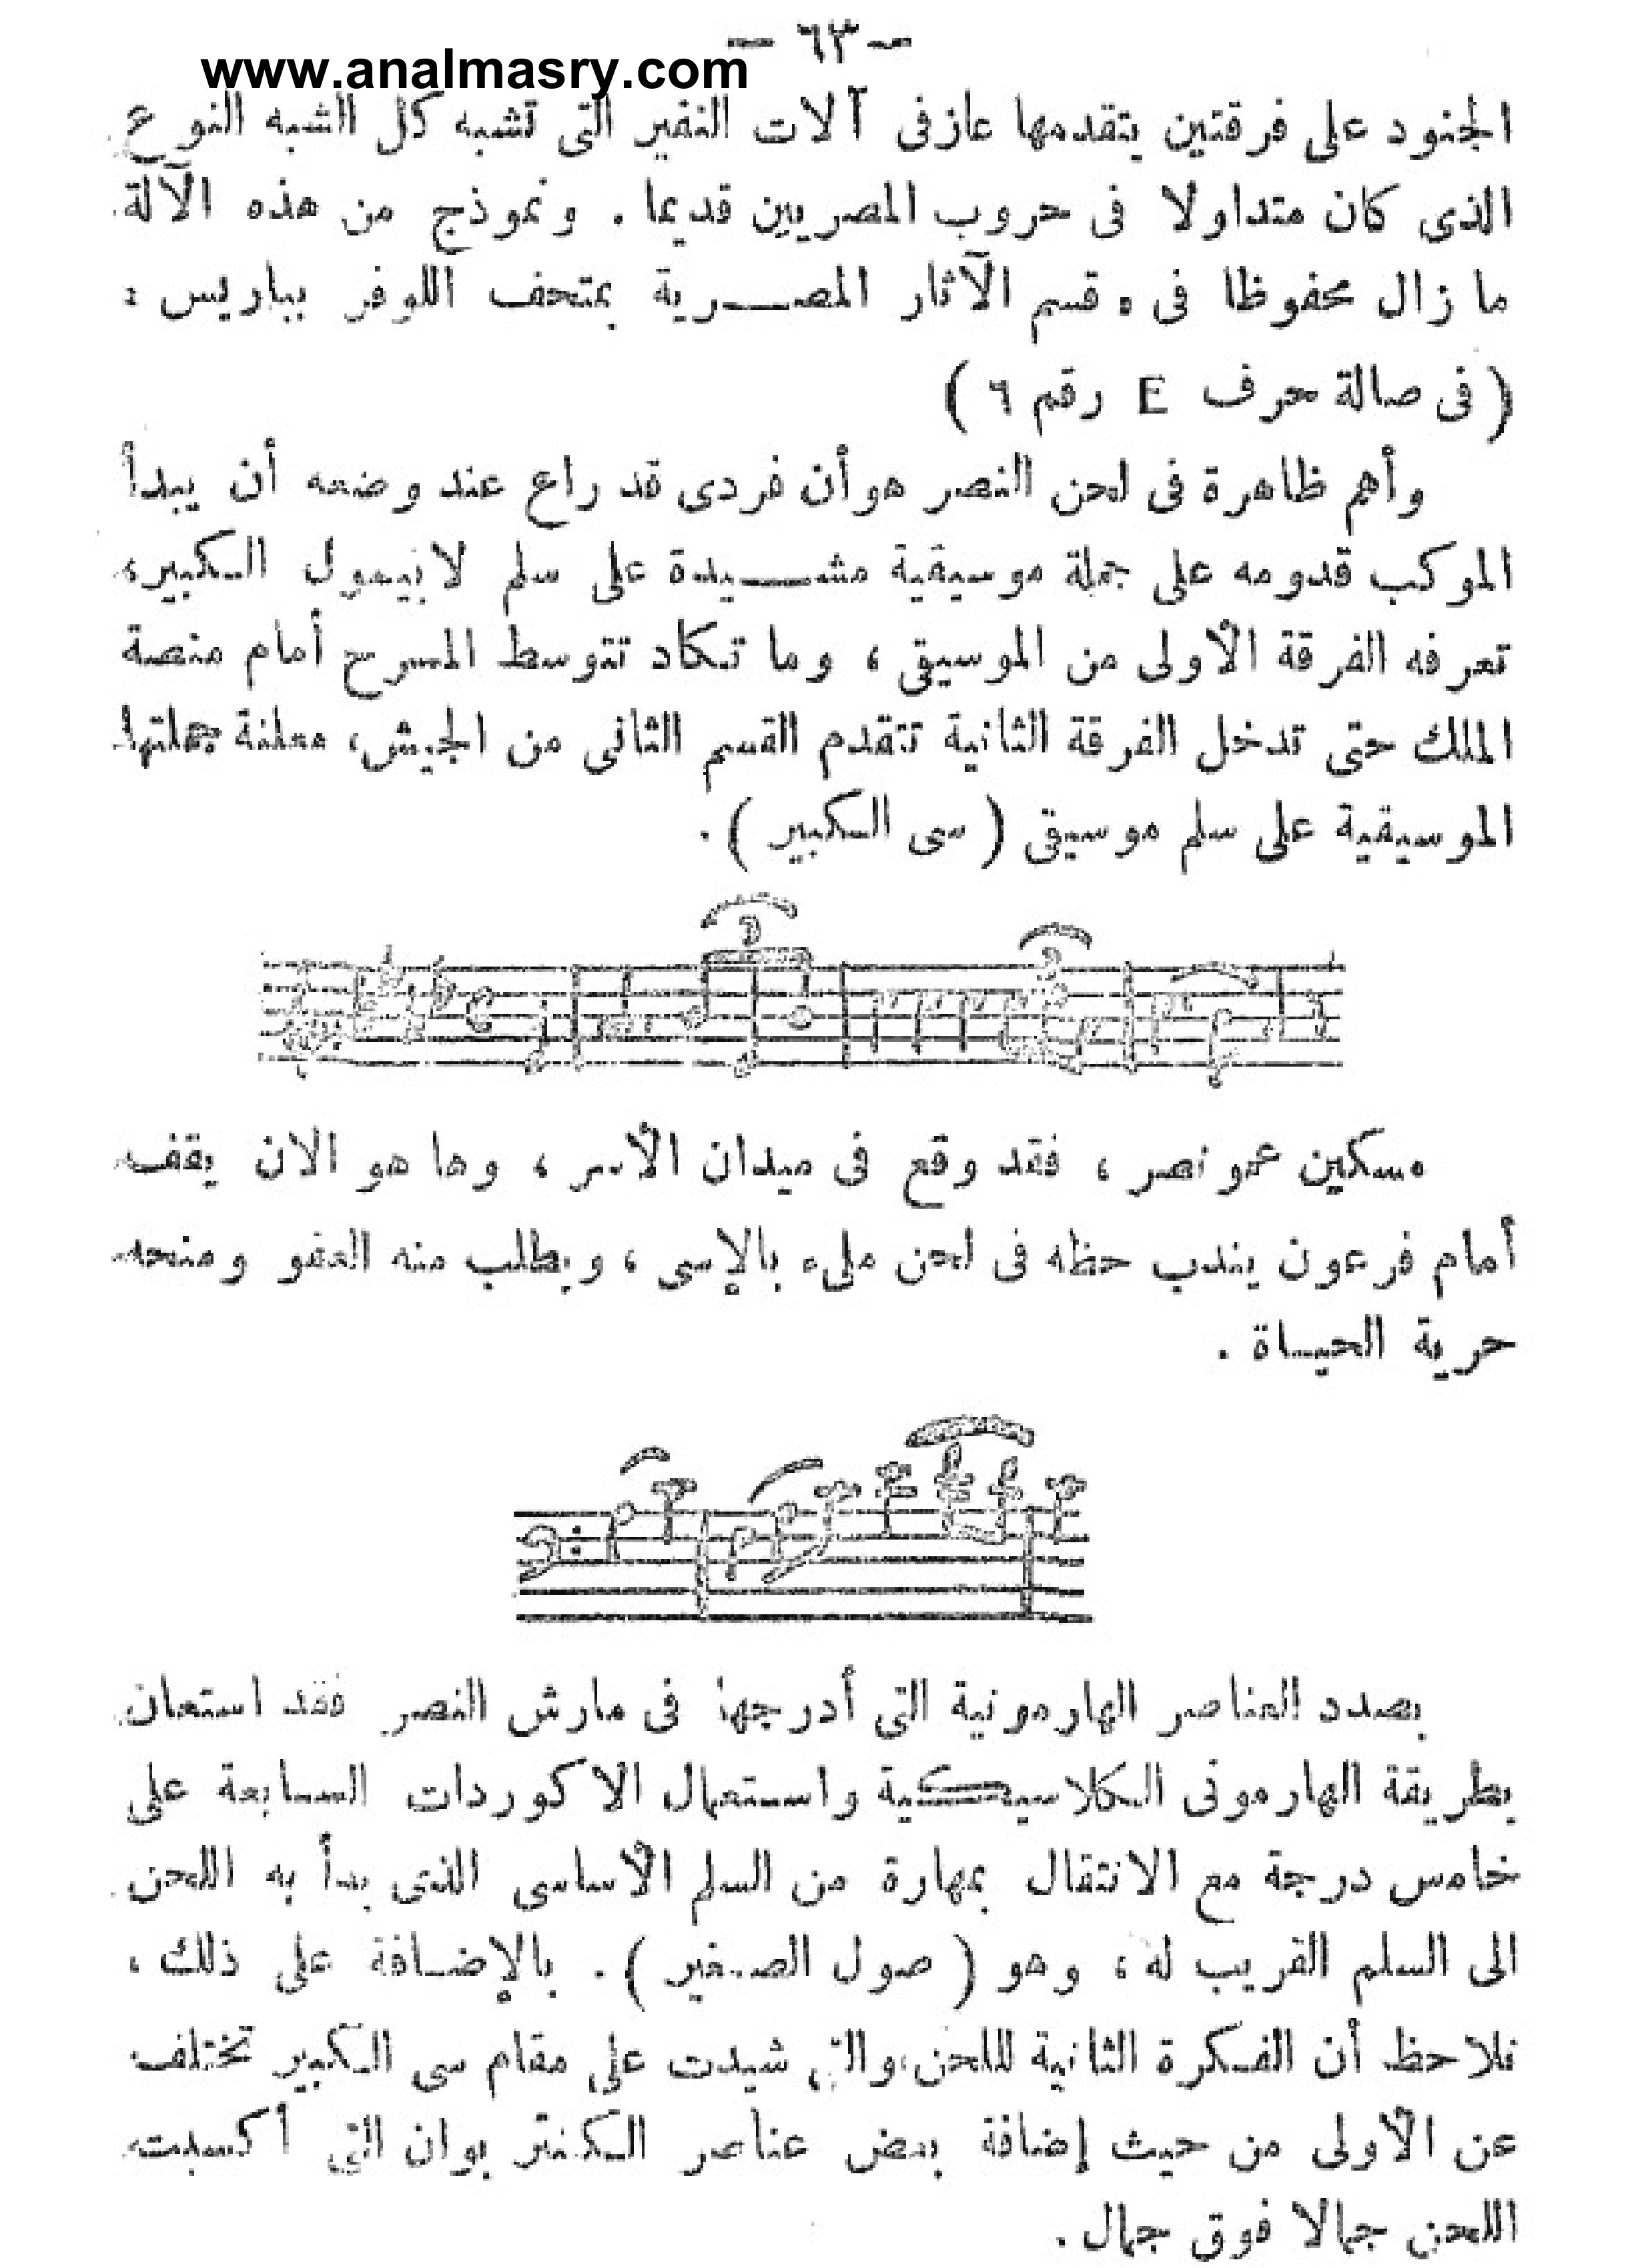 — ٦٣ —
www.analmasry.com
الجنود على فرقتين يتقدمها عازفى آلات النفير التى تشبه كل الشبه النوع
الذى كان متداولا فى حروب المصريين قديما . ونموذج من هذه الآلة
ما زال محفوظا فى ه قسم الآثار المصرية بمتحف اللوفر بباريس :
( فى صالة حرف E رقم ٦ )
وأهم ظاهرة فى لحن النصر هو أن فردى قد راع عند وضعه أن يبدأ
الموكب قدومه على جملة موسيقية مشيدة على سلم لا بيمول الكبير،
تعرفه الفرقة الأولى من الموسيقى ، وما تكاد تتوسط المسرح أمام منصة
الملك حتى تدخل الفرقة الثانية تتقدم القسم الثانى من الجيش، معلنة جملتها
الموسيقية على سلم موسيقى ( سى الكبير ) .
3
مسكين عمو نصر ، فقد وقع فى ميدان الأسر ، وها هو الان يقف
أمام فرعون يندب حظه فى لحن ملىء بالإسى ، ويطلب منه العفو ومنحه
حرية الحياة .
بصدد العناصر الهارمونية التى أدرجها فى مارش النصر فقد استعان
بطريقة الهارمونى الكلاسيكية واستعمال الاكوردات السابعة على
خامس درجة مع الانتقال بمهارة من السلم الأساسى الذى بدأ به اللحن
الى السلم القريب له ، وهو ( صول الصغير ) . بالإضافة على ذلك ،
نلاحظ أن الفكرة الثانية للحن، والتى شيدت على مقام سى الكبير تختلف
عن الأولى من حيث إضافة بعض عناصر الكنتر بوان التى أكسبت
اللحن جمالا فوق جمال .